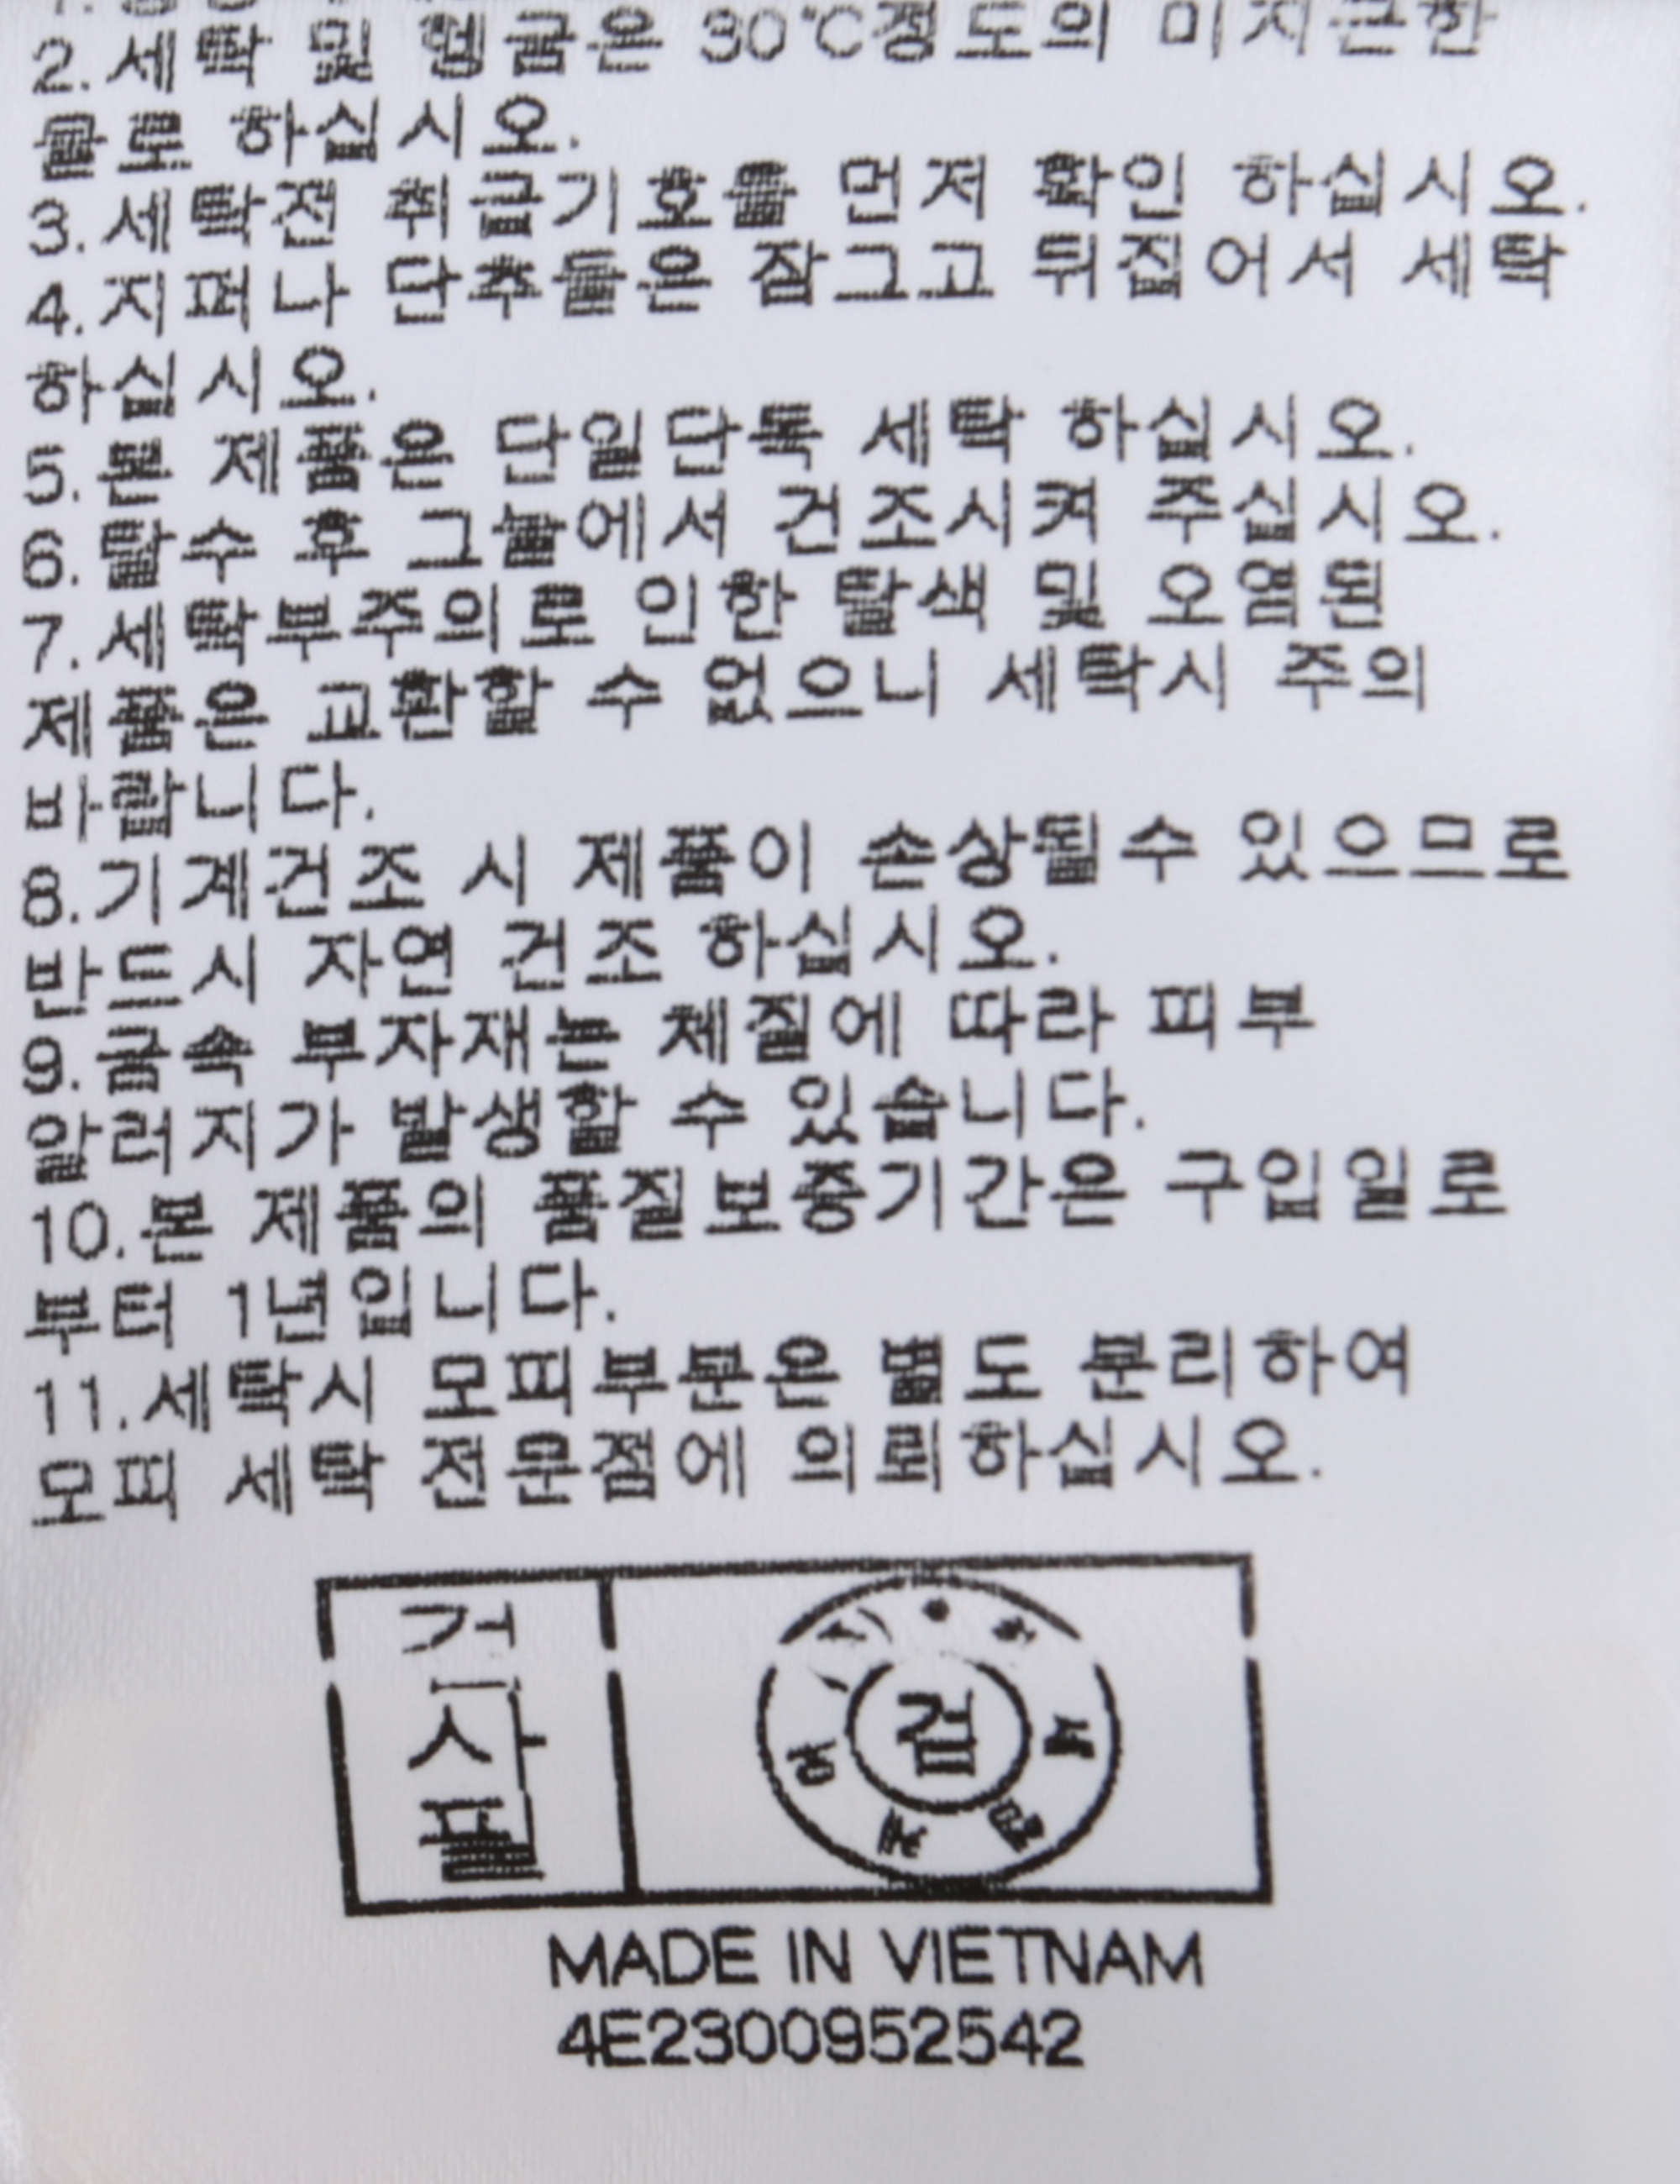 2.세탁 및 헹굼은 30℃정도의 미지근한
물로 하십시오.
3.세탁전 취급기호를 먼저 확인 하십시오.
4.지퍼나 단추들은 잠그고 뒤집어서 세탁
하십시오.
5.본 제품은 단일단독 세탁 하십시오.
6.탈수 후 그늘에서 건조시켜 주십시오.
7.세탁부주의로 인한 탈색 및 오염된
제품은 교환할 수 없으니 세탁시 주의
바랍니다.
8.기계건조 시 제품이 손상될수 있으므로
반드시 자연 건조 하십시오.
9.금속 부자재는 체질에 따라 피부
알러지가 발생할 수 있습니다.
10.본 제품의 품질보증기간은 구입일로
부터 1년입니다.
11.세탁시 모피부분은 별도 분리하여
모피 세탁 전문점에 의뢰하십시오.
검사필
검
MADE IN VIETNAM
4E2300952542